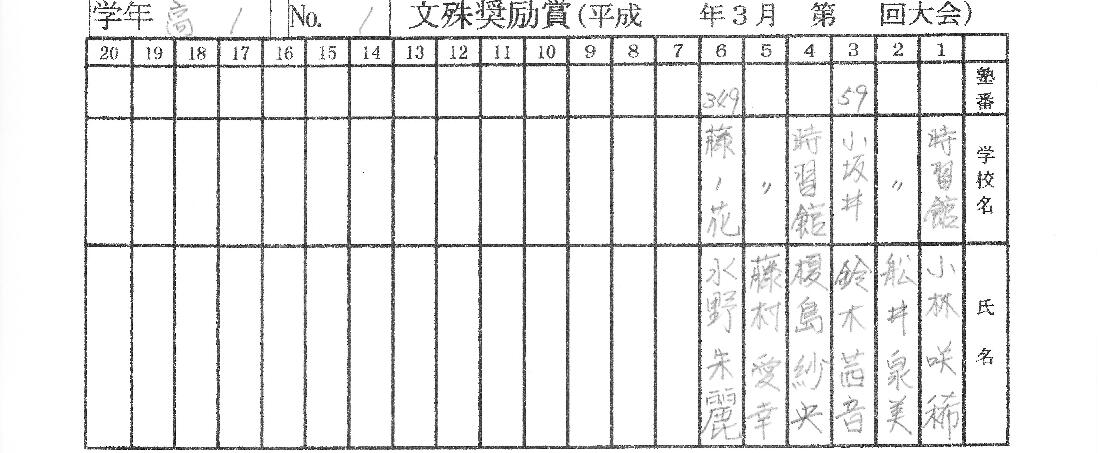 学年 高 1 No. 1 文殊奨励賞(平成 年3月 第 回大会)
20 19 18 17 16 15 14 13 12 11 10 9 8 7 6 5 4 3 2 1
塾番
349 59
学校名
時習館
〃
小坂井
時習館
〃
藤ノ花
氏名
小林 咲稀
舩井 泉美
鈴木 茜音
榎島 紗央
藤村 愛幸
水野 朱麗